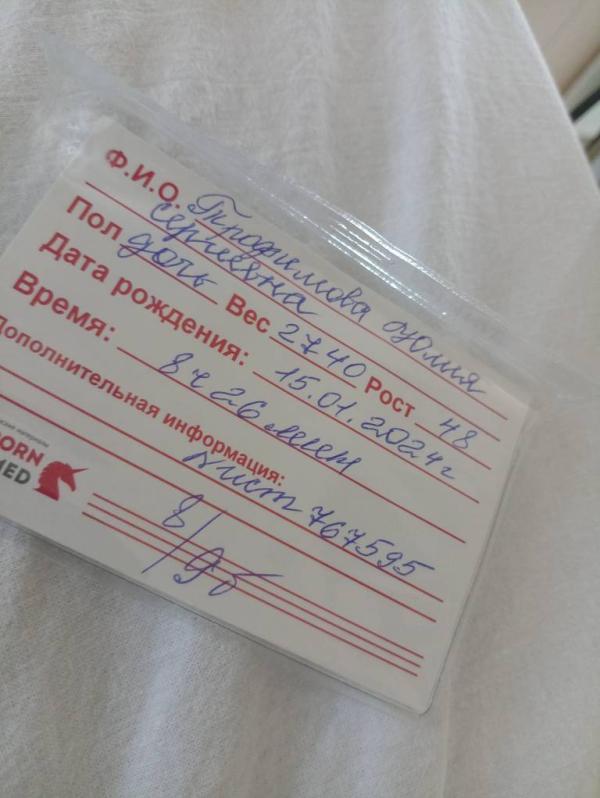 Ф.И.О. Трофимова Юлия
Сергеевна
Пол дочь Вес 2740 Рост 48
Дата рождения: 15.01.2024г
Время: 8ч 26 мин
Дополнительная информация:
лист 767595
8/9б
ORN
MED